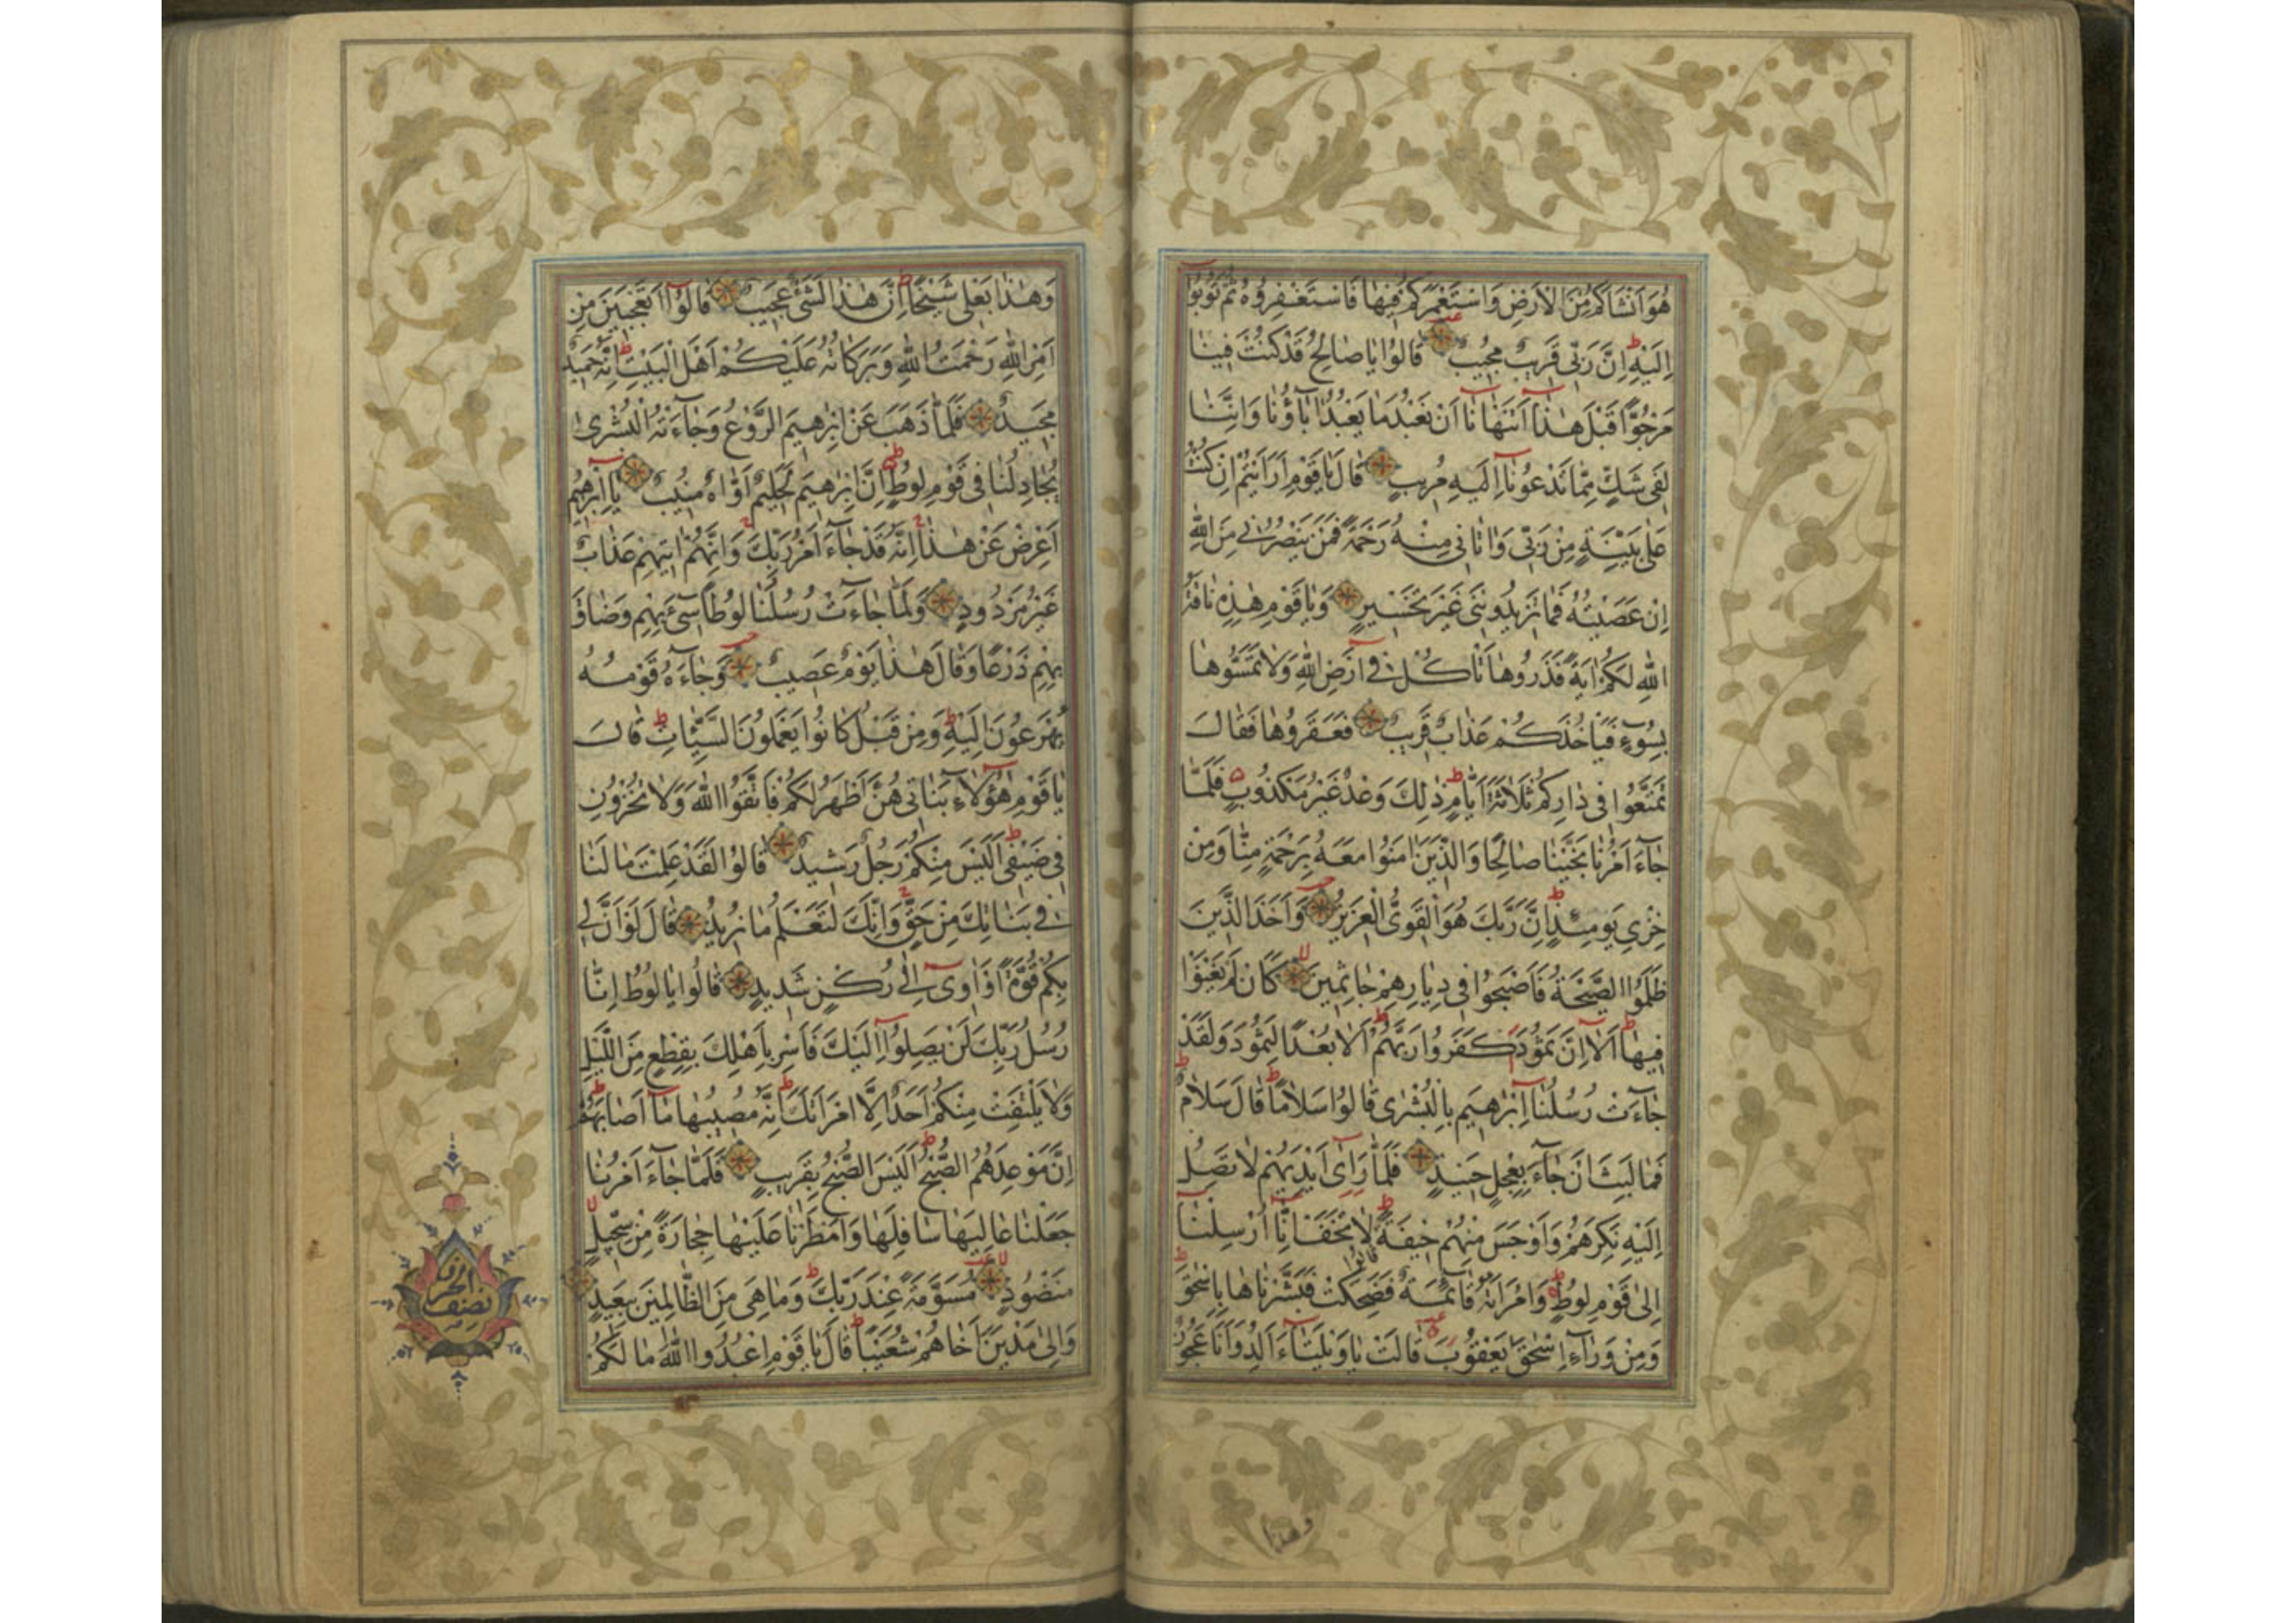 هُوَ اَنْشَاَكُمْ مِنَ الْاَرْضِ وَاسْتَعْمَرَكُمْ فِيهَا فَاسْتَغْفِرُوهُ ثُمَّ تُوبُوا
اِلَيْهِ اِنَّ رَبِّى قَرِيبٌ مُجِيبٌ قَالُوا يَا صَالِحُ قَدْ كُنْتَ فِينَا
مَرْجُوًّا قَبْلَ هٰذَا اَتَنْهَانَا اَنْ نَعْبُدَ مَا يَعْبُدُ اٰبَاؤُنَا وَاِنَّنَا
لَفِى شَكٍّ مِمَّا تَدْعُونَا اِلَيْهِ مُرِيبٍ قَالَ يَا قَوْمِ اَرَاَيْتُمْ اِنْ كُنْتُ
عَلٰى بَيِّنَةٍ مِنْ رَبِّى وَاٰتَانِى مِنْهُ رَحْمَةً فَمَنْ يَنْصُرُنِى مِنَ اللّٰهِ
اِنْ عَصَيْتُهُ فَمَا تَزِيدُونَنِى غَيْرَ تَخْسِيرٍ وَيَا قَوْمِ هٰذِهِ نَاقَةُ
اللّٰهِ لَكُمْ اٰيَةً فَذَرُوهَا تَاْكُلْ فِى اَرْضِ اللّٰهِ وَلَا تَمَسُّوهَا
بِسُوءٍ فَيَاْخُذَكُمْ عَذَابٌ قَرِيبٌ فَعَقَرُوهَا فَقَالَ
تَمَتَّعُوا فِى دَارِكُمْ ثَلَاثَةَ اَيَّامٍ ذٰلِكَ وَعْدٌ غَيْرُ مَكْذُوبٍ فَلَمَّا
جَاءَ اَمْرُنَا نَجَّيْنَا صَالِحًا وَالَّذِينَ اٰمَنُوا مَعَهُ بِرَحْمَةٍ مِنَّا وَمِنْ
خِزْىِ يَوْمِئِذٍ اِنَّ رَبَّكَ هُوَ الْقَوِىُّ الْعَزِيزُ وَاَخَذَ الَّذِينَ
ظَلَمُوا الصَّيْحَةُ فَاَصْبَحُوا فِى دِيَارِهِمْ جَاثِمِينَ كَاَنْ لَمْ يَغْنَوْا
فِيهَا اَلَا اِنَّ ثَمُودَ كَفَرُوا رَبَّهُمْ اَلَا بُعْدًا لِثَمُودَ وَلَقَدْ
جَاءَتْ رُسُلُنَا اِبْرٰهِيمَ بِالْبُشْرٰى قَالُوا سَلَامًا قَالَ سَلَامٌ
فَمَا لَبِثَ اَنْ جَاءَ بِعِجْلٍ حَنِيذٍ فَلَمَّا رَاٰى اَيْدِيَهُمْ لَا تَصِلُ
اِلَيْهِ نَكِرَهُمْ وَاَوْجَسَ مِنْهُمْ خِيفَةً قَالُوا لَا تَخَفْ اِنَّا اُرْسِلْنَا
اِلٰى قَوْمِ لُوطٍ وَامْرَاَتُهُ قَائِمَةٌ فَضَحِكَتْ فَبَشَّرْنَاهَا بِاِسْحٰقَ
وَمِنْ وَرَاءِ اِسْحٰقَ يَعْقُوبَ قَالَتْ يَا وَيْلَتَاءَ اَلِدُ وَاَنَا عَجُوزٌ
وهذا
وَهٰذَا بَعْلِى شَيْخًا اِنَّ هٰذَا لَشَىْءٌ عَجِيبٌ قَالُوا اَتَعْجَبِينَ مِنْ
اَمْرِ اللّٰهِ رَحْمَتُ اللّٰهِ وَبَرَكَاتُهُ عَلَيْكُمْ اَهْلَ الْبَيْتِ اِنَّهُ حَمِيدٌ
مَجِيدٌ فَلَمَّا ذَهَبَ عَنْ اِبْرٰهِيمَ الرَّوْعُ وَجَاءَتْهُ الْبُشْرٰى
يُجَادِلُنَا فِى قَوْمِ لُوطٍ اِنَّ اِبْرٰهِيمَ لَحَلِيمٌ اَوَّاهٌ مُنِيبٌ يَا اِبْرٰهِيمُ
اَعْرِضْ عَنْ هٰذَا اِنَّهُ قَدْ جَاءَ اَمْرُ رَبِّكَ وَاِنَّهُمْ اٰتِيهِمْ عَذَابٌ
غَيْرُ مَرْدُودٍ وَلَمَّا جَاءَتْ رُسُلُنَا لُوطًا سِىءَ بِهِمْ وَضَاقَ
بِهِمْ ذَرْعًا وَقَالَ هٰذَا يَوْمٌ عَصِيبٌ وَجَاءَهُ قَوْمُهُ
يُهْرَعُونَ اِلَيْهِ وَمِنْ قَبْلُ كَانُوا يَعْمَلُونَ السَّيِّئَاتِ قَالَ
يَا قَوْمِ هٰؤُلَاءِ بَنَاتِى هُنَّ اَطْهَرُ لَكُمْ فَاتَّقُوا اللّٰهَ وَلَا تُخْزُونِ
فِى ضَيْفِى اَلَيْسَ مِنْكُمْ رَجُلٌ رَشِيدٌ قَالُوا لَقَدْ عَلِمْتَ مَا لَنَا
فِى بَنَاتِكَ مِنْ حَقٍّ وَاِنَّكَ لَتَعْلَمُ مَا نُرِيدُ قَالَ لَوْ اَنَّ لِى
بِكُمْ قُوَّةً اَوْ اٰوِى اِلٰى رُكْنٍ شَدِيدٍ قَالُوا يَا لُوطُ اِنَّا
رُسُلُ رَبِّكَ لَنْ يَصِلُوا اِلَيْكَ فَاَسْرِ بِاَهْلِكَ بِقِطْعٍ مِنَ الَّيْلِ
وَلَا يَلْتَفِتْ مِنْكُمْ اَحَدٌ اِلَّا امْرَاَتَكَ اِنَّهُ مُصِيبُهَا مَا اَصَابَهُمْ
اِنَّ مَوْعِدَهُمُ الصُّبْحُ اَلَيْسَ الصُّبْحُ بِقَرِيبٍ فَلَمَّا جَاءَ اَمْرُنَا
جَعَلْنَا عَالِيَهَا سَافِلَهَا وَاَمْطَرْنَا عَلَيْهَا حِجَارَةً مِنْ سِجِّيلٍ
مَنْضُودٍ مُسَوَّمَةً عِنْدَ رَبِّكَ وَمَا هِىَ مِنَ الظَّالِمِينَ بِبَعِيدٍ
وَاِلٰى مَدْيَنَ اَخَاهُمْ شُعَيْبًا قَالَ يَا قَوْمِ اعْبُدُوا اللّٰهَ مَا لَكُمْ
نصف الحزب